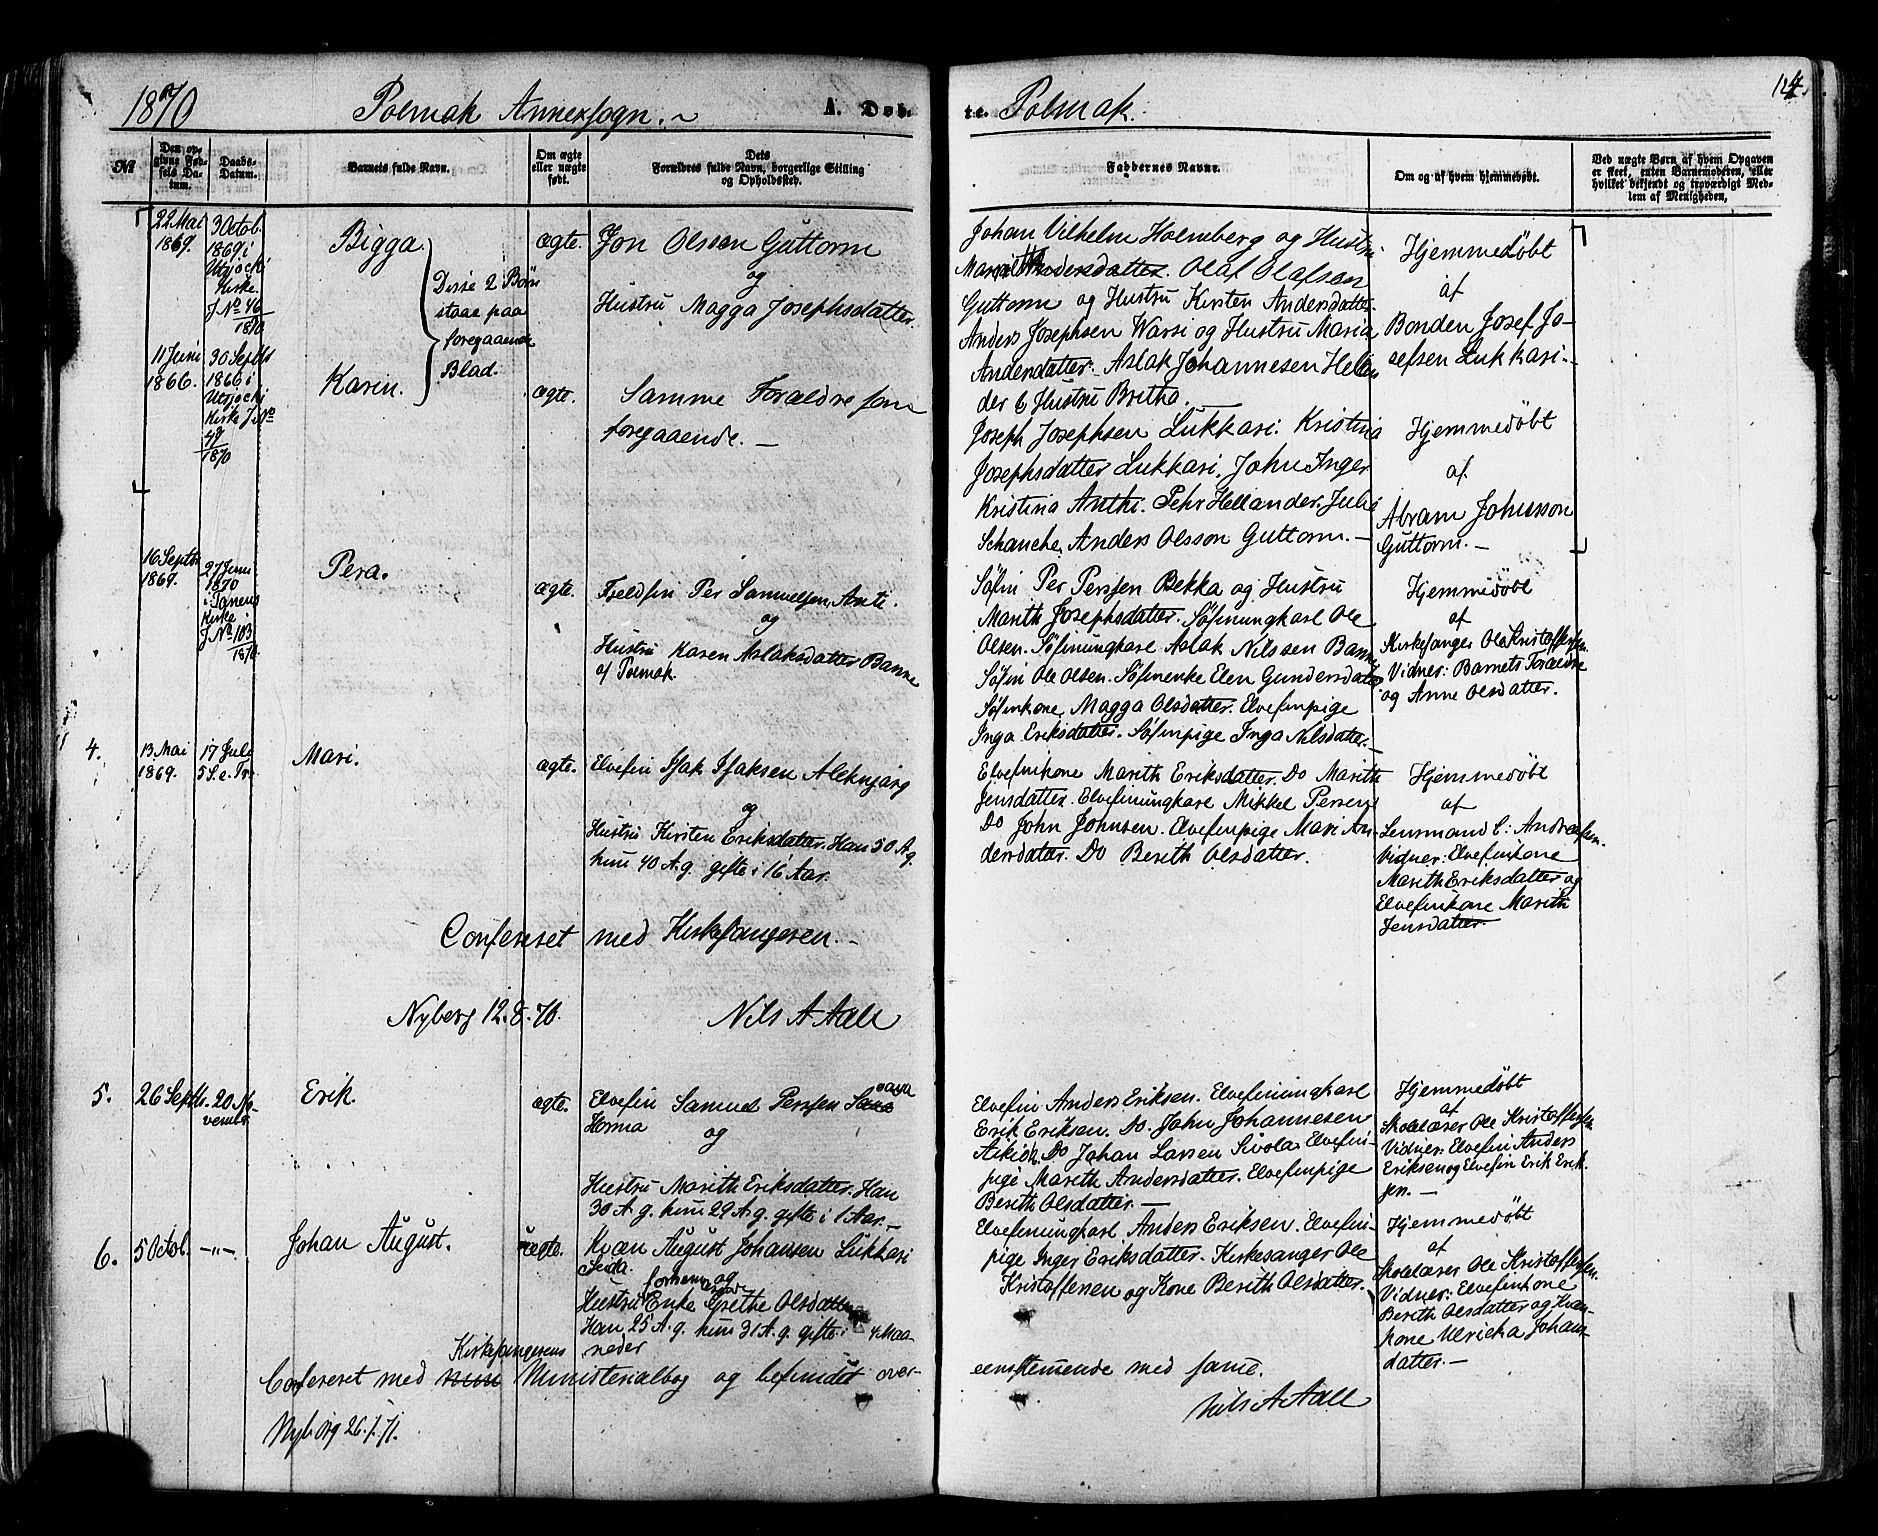 1870
Polmak Annexsogn. ~
A. Døb-
te. Polmak.
124.
№
Den op-
givne Fød-
sels Da-
tum.
Daabs-
Datum.
Barnets fulde Navn.
Om ægte
eller uægte
født.
Dets
Forældres fulde Navn, borgerlige Stilling
og Opholdssted.
Faddernes Navne.
Om og af hvem hjemmedøbt.
Ved uægte Børn af hvem Opgaven
er skeet, enten Barnemoderen, eller
hvilket bekjendt og troværdigt Med-
lem af Menigheden.
22 Mai
1869.
3 Octob.
1869 i
Utsjocki
Kirke.
J No 46
1870
Bigga
Disse 2 Børn
staae paa
foregaaende
Blad.
ægte.
Jon Olsson Guttorm
og
Hustru Magga Josephsdatter.
Johan Vilhelm Holmberg og Hustru
Andersdatter. Olaf Olafsen
Guttorm og Hustru Kirsten Andersdatter
Anders Josephsen Warsi og Hustru Maria
Andersdatter. Aslak Johannesen Hellan
der & Hustru Britha.
Hjemmedøbt
af
Bonden Josef Jo-
sefsen Lukkari.-
11 Juni
1866.
30 Septbr
1866 i
Utsjocki
Kirke J No
48
1870
Karin.
ægte.
Samme Forældre som
foregaaende. —
Joseph Josephsen Lukkari. Kristina
Josephsdatter Lukkari, John Inger
Kristina Anthi. Pehr Hellander. Julie
Schanche, Anders Olsson Guttorm. —
Hjemmedøbt
af
Abram Johnsson
Guttorm. —
16 Septbr
1869.
27 Juni
1870
i Tanens
Kirke
J No 103
1870
Pera.
ægte.
Fjeldfin Per Samuelsen Anti.
og
Hustru Karen Aslaksdatter Banne
af Polmak.
Søfin Per Persen Bekka og Hustru
Marith Josephsdatter. Søfinungkarl Ole
Olsen. Søfinungkarl Aslak Nilssen Banne
Søfin Ole Olsen. Søfinenke Elen Gundersdatter
Søfinkone Magga Olsdatter. Elvefinpige
Inga Eriksdatter. Søfinpige Inga Nilsdatter.—
Hjemmedøbt
af
Kirkesanger Ole Kristoffersen.
Vidner: Barnets Forældre
og Anne Olsdatter.
4.
13 Mai
1869.
17 Juli
5 S. e. Tr.
Mari.
ægte.
Elvefin Isak Isaksen Aleknjarg
og
Hustru Kirsten Eriksdatter. Han 50 A. g.
hun 40 A. g. gifte i 16 Aar.
Elvefinkone Marith Eriksdatter. Do Marith
Jensdatter. Elvefinungkarl Mikkel Persen
Do John Johnsen. Elvefinpige Mari An-
dersdatter. Do Berith Olsdatter.
Hjemmedøbt
af
Lensmand C: Andreasen.
Vidner: Elvefinkone
Marith Eriksdatter og
Elvefinkone Marith
Jensdatter.
Confereret med Kirkesangeren. —
Nyborg 12. 8. 70.
Nils A Aall
5.
26 Septbr.
20 No-
vember.
Erik.
ægte.
Elvefin Samuel Perssen
Horma
og
Hustru Marith Eriksdatter. Han
30 A. g. hun 29 A. g. gifte i 1 Aar. —
Elvefin Anders Eriksen. Elvefinungkarl
Erik Eriksen. Do. John Johannesen
Aikio. Do Johan Larsen Sivola Elvefin-
pige Marith Andersdatter. Elvefinpige
Berith Olsdatter. —
Hjemmedøbt
af
Skolelærer Ole Kristoffersen.
Vidner: Elvefin Anders
Eriksen og Elvefin Erik Erik-
sen. —
6.
5 Octob.
—"—
Johan August.
ægte.
Kvæn August Johansen Lukkari
Seida.
og
Hustru Enke Grethe Olsdatter
Han 25 A. g. hun 31 A. g. gifte i 4 Maa-
neder
Elvefinungkarl Anders Eriksen. Elvefin-
pige Inger Eriksdatter. Kirkesanger Ole
Kristoffersen og Kone Berith Olsdatter.
Hjemmedøbt
af
Skolelærer Ole Kristoffersen.
Vidner: Elvefinkone
Berith Olsdatter og Kvæn-
kone Ulricka Johans-
datter. —
Kirkesangerens
Confereret med Ministerialbog og befundet over-
eenstemmende med samme.
Nyborg 26. 1. 71.
Nils A Aall